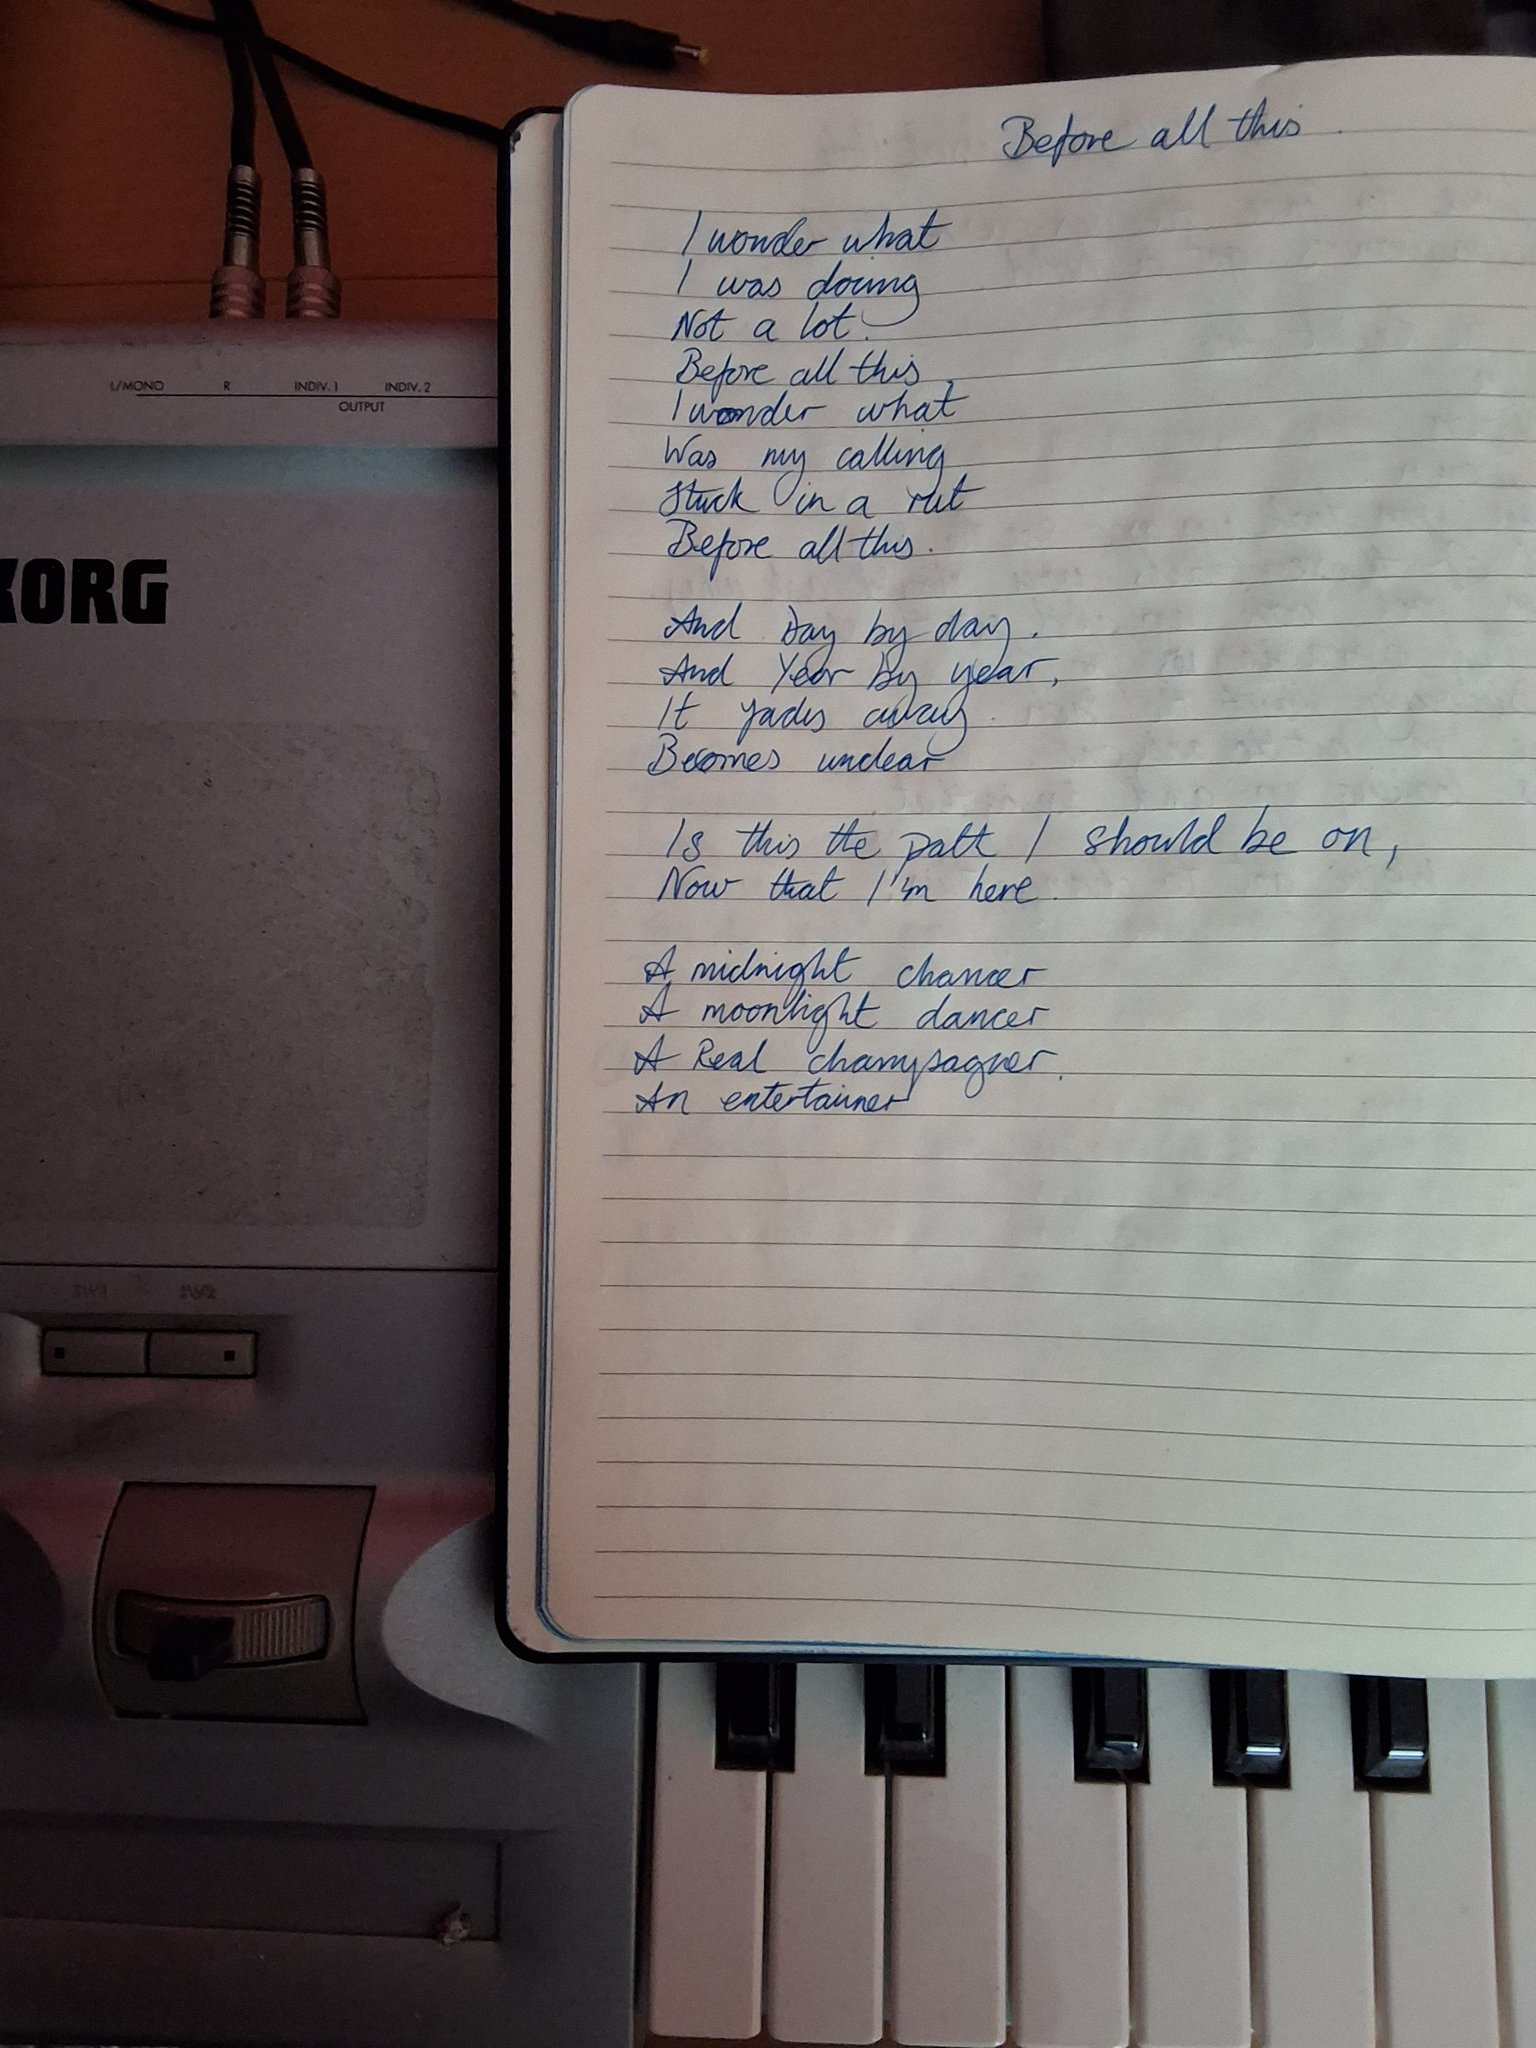 Before all this
I wonder what
I was doing
Not a lot.
Before all this,
I wonder what
Was my calling
Stuck in a rut
Before all this.
And Day by day.
And Year by year,
It fades away.
Becomes unclear
Is this the path I should be on,
Now that I'm here.
A midnight chancer
A moonlight dancer
A Real champagner.
An entertainer
L/MONO R INDIV. 1 INDIV. 2
OUTPUT
KORG
SW1 SW2